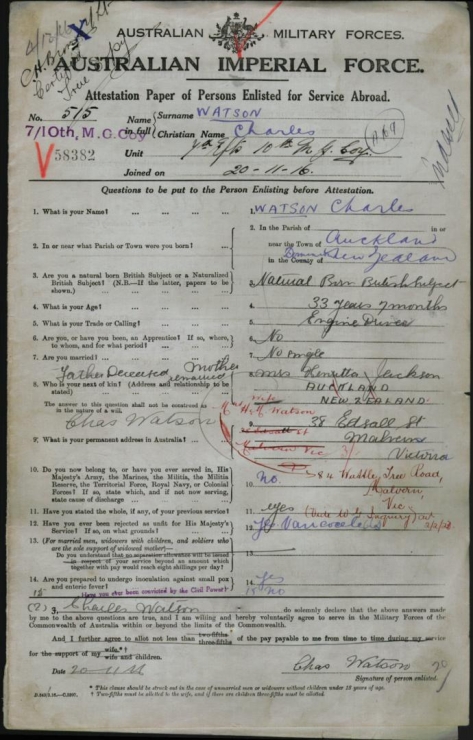 4/12/16
C.H.
Certified
True Copy
AUSTRALIAN MILITARY FORCES.
AUSTRALIAN IMPERIAL FORCE.
Attestation Paper of Persons Enlisted for Service Abroad.
No. 515 Name in full Surname WATSON
7/10th, M.G. Coy Christian Name Charles
V58382 Unit 10th M G Coy.
Joined on 20-11-16.
Questions to be put to the Person Enlisting before Attestation.
1. What is your Name? ... ... ... 1. WATSON Charles
2. In or near what Parish or Town were you born? ... 2. In the Parish of in or near the Town of Auckland in the County of New Zealand
3. Are you a natural born British Subject or a Naturalized British Subject? (N.B.—If the latter, papers to be shown.) ... 3. Natural Born British Subject
4. What is your Age? ... 4. 33 Years 7 months
5. What is your Trade or Calling? ... 5. Engine Driver
6. Are you, or have you been, an Apprentice? If so, where, to whom, and for what period? ... 6. No
7. Are you married? ... 7. No single
Father Deceased Mother remarried
8. Who is your next of kin? (Address and relationship to be stated) ... 8. Mrs Jackson
AUCKLAND
NEW ZEALAND.
The answer to this question shall not be construed as in the nature of a will.
Chas Watson
wife Watson
9. What is your permanent address in Australia? ... 38 Edsall St
Malvern
Victoria
Malvern Vic
84 Wattle Tree Road,
Malvern
Vic
10. Do you now belong to, or have you ever served in, His Majesty's Army, the Marines, the Militia, the Militia Reserve, the Territorial Force, Royal Navy, or Colonial Forces? If so, state which, and if not now serving, state cause of discharge ... 10. no.
11. Have you stated the whole, if any, of your previous service? 11. yes
12. Have you ever been rejected as unfit for His Majesty's Service? If so, on what grounds? ... 12. Yes
13. (For married men, widowers with children, and soldiers who are the sole support of widowed mother—
Do you understand that no separation allowance will be issued in respect of your service beyond an amount which together with pay would reach eight shillings per day? 13.
14. Are you prepared to undergo inoculation against small pox and enteric fever? ... 14. Yes
15 Have you ever been convicted by the Civil Power? 15 no
I, Charles Watson do solemnly declare that the above answers made
by me to the above questions are true, and I am willing and hereby voluntarily agree to serve in the Military Forces of the
Commonwealth of Australia within or beyond the limits of the Commonwealth.
And I further agree to allot not less than two-fifths three-fifths of the pay payable to me from time to time during my service
for the support of my wife.* wife and children.
Date 20-11-16 Chas Watson
Signature of person enlisted.
* This clause should be struck out in the case of unmarried men or widowers without children under 18 years of age.
† Two-fifths must be allotted to the wife, and if there are children three-fifths must be allotted.